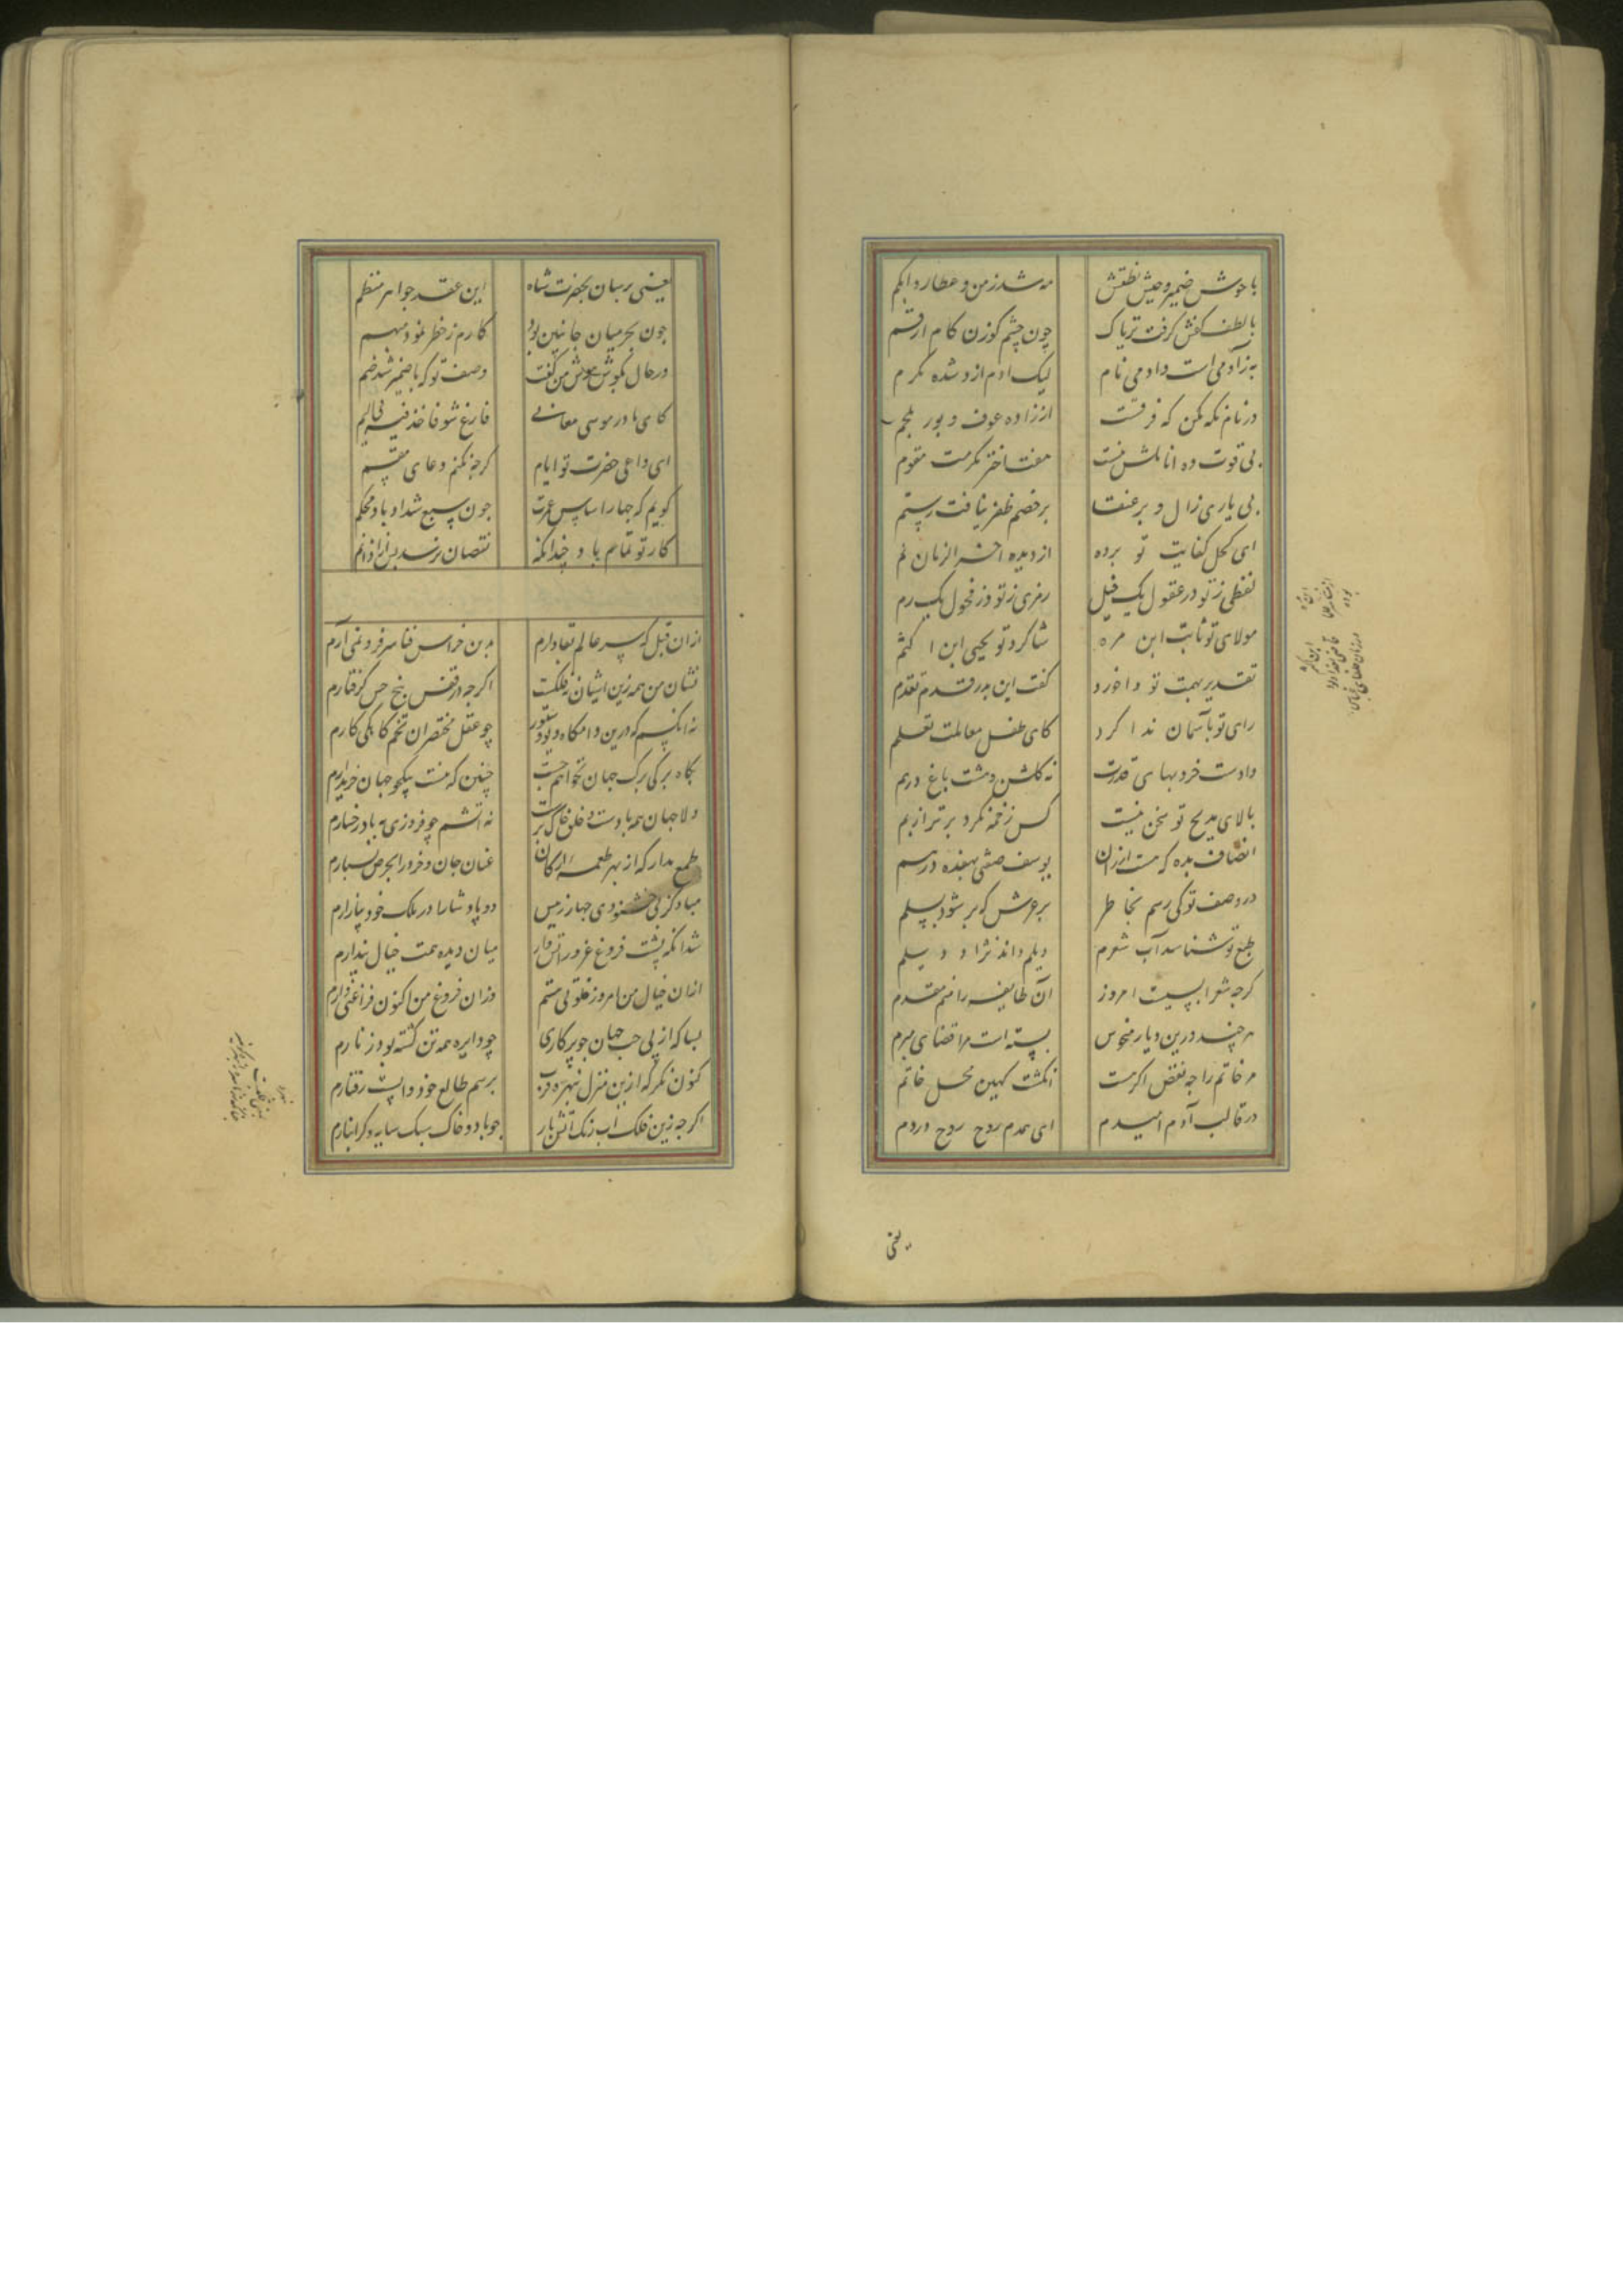 با جوش ضمیر و جیش نطقش
مه شد زمن و عطارد ابکم
با لطف کفش گرفت تریاک
چون چشم گوزن کام ارقم
به ز آدمی است و آدمی نام
لیک آدم ازو شده مکرم
در نام نگه مکن که فرقست
از زاده عوف و پور ملجم
بی قوت ده اناملش نیست
هفت اختر مکرمت مقوم
بی یاری زال و پر عنقا
بر خصم ظفر نیافت رستم
ای کحل کفایت تو برده
از دیده آخر الزمان نم
لفظی ز تو وز عقول یک خیل
رمزی ز تو وز فحول یک رم
مولای تو ثابت ابن مره
شاکرد تو یحیی ابن اکثم
تقدیر بهمت تو داخورد
گفت این بدر قدم تقدم
رای تو باسمان ندا کرد
کای طفل معاملت تعلم
دادست خرد بهای قدرت
نه گلشن و هشت باغ درهم
بالای مدیح تو سخن نیست
کس زخمه نکرد برتر از بم
انصاف بده که هست ارزان
یوسف صفتی بهفده درهم
در وصف تو کی رسم بخاطر
بر عرش که بر شود بسلم
طبع تو شناسد آب شعرم
دیلم داند نژاد دیلم
گرچه شعرا بسیست امروز
آن طایفه را منم مقدم
هر چند درین دیار منحوس
بسته است مرا قضای مبرم
مر خاتم را چه نقص اگر هست
انگشت کهین محل خاتم
در قالب آدم امیدم
ای همدم روح روح در دم
یعنی
یعنی برسان بحضرت شاه
این عقد جواهر منظم
چون بحر میان جانبین بود
کارم ز خطر نمود مبهم
در حال بگوش هوش من گفت
وصف تو که با ضمیر شد ضم
کای مادر موسی معانی
فارغ شو فاقذفیه فی الیم
ای داعی حضرت تو ایام
گرچه نکنم دعای مقسم
گویم که چهار اساس عمرت
چون سبع شداد باد محکم
کار تو تمام باد چندانکه
نقصان نرسد پس از اذا تم
از آن قبل که سر عالم بقا دارم
بدین خراس فنا سر فرو نمی آرم
نشان من همه زین آشیان فلکست
اگرچه در قفس پنج حس گرفتارم
نه آنکسم که درین دامگاه دیو و ستور
چو عقل مختصران تخم کاهگی کارم
بکاه برگی برگ جهان نخواهم جست
چنین که هست بیکجو جهان خریدارم
دلا جهان همه بادست و خلق خاک پرست
نه آتشم چو فروزی به باد رخسارم
طمع مدار که از بهر طعمه ارکان
عنان جان و خرد را بحرص بسپارم
مباد کز پی خشنودی چهار رئیس
دو پادشا را در ملک خود بیازارم
شد آنکه پشت فروغ غرور آتش وار
میان دیده همت خیال پندارم
از آن خیال من امروز خلوتی هستم
وزان فروغ من اکنون فراغتی دارم
بسا که از پی حب جهان چو پرگاری
چو دایره همه تن گشته بود زنارم
کنون نگر که ازین منزل نبهره فریب
برسم طالع خود واپس است رفتارم
اگرچه زین فلک آب رنگ آتش بار
چو باد و خاک سبک سایه و گرانبارم